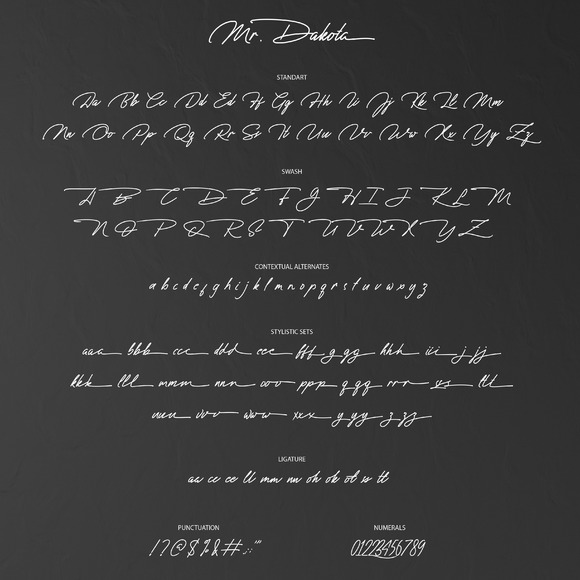 Mr. Dakota
STANDART
Aa Bb Cc Dd Ed Ff Gg Hh Ii Jj Kk Ll Mm
Nn Oo Pp Qq Rr Ss Tt Uu Vv Ww Xx Yy Zz
SWASH
A B C D E F G H I J K L M
N O P Q R S T U V W X Y Z
CONTEXTUAL ALTERNATES
a b c d e f g h i j k l m n o p q r s t u v w x y z
STYLISTIC SETS
aaa bbb ccc ddd eee fff g gg hhh iii j jj
kkk lll mmm nnn ooo ppp q qq rrr ss ttt
uuu vvv www xxx y yy z zz
LIGATURE
aa cc ee ll mm nn oh ok ot ss tt
PUNCTUATION
NUMERALS
!?@$%&#.:"'
0123456789